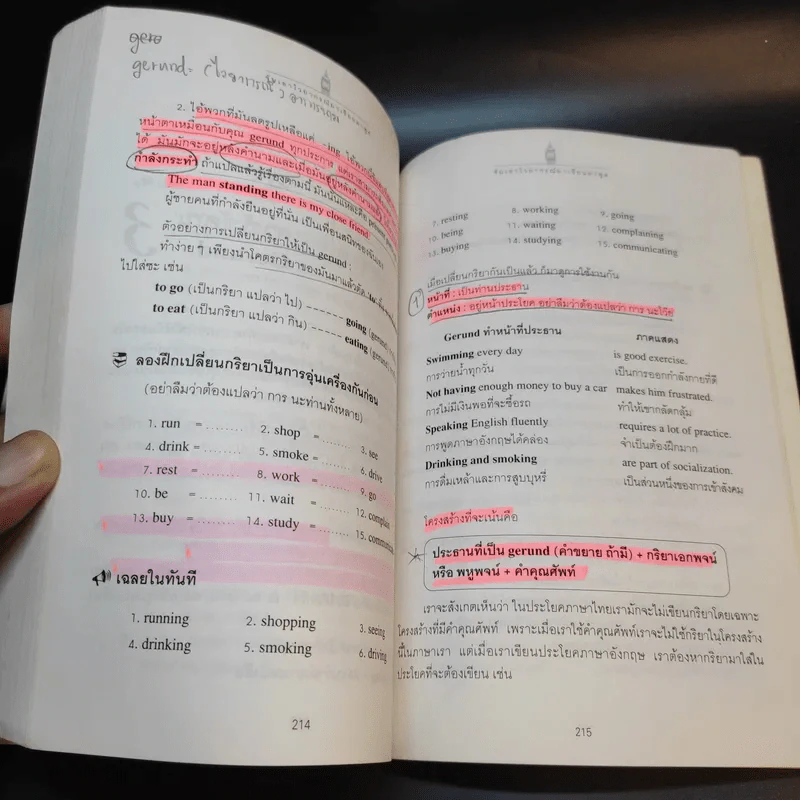 gero
gerund =
2. ไอ้พวกที่มันลดรูปเหลือแค่ -ing ไอ้พวกนี้
หน้าตาเหมือนกับคุณ gerund ทุกประการ
ได้ มันมักจะอยู่หลังคำนามและเมื่อมันอยู่หลังคำนาม
กำลังกระทำ ถ้าแปลแล้วรู้เรื่องตามนี้ มันนั่นแหละคือ
The man standing there is my close friend.
ผู้ชายคนที่กำลังยืนอยู่ที่นั่น เป็นเพื่อนสนิทของฉันเอง
ตัวอย่างการเปลี่ยนกริยาให้เป็น gerund :
ทำง่าย ๆ เพียงนำโคตรกริยาของมันมาแล้วตัด
ไปใส่ซะ เช่น
to go (เป็นกริยา แปลว่า ไป) ------ going (gerund
to eat (เป็นกริยา แปลว่า กิน) ------ eating (gerund
ลองฝึกเปลี่ยนกริยาเป็นการอุ่นเครื่องกันก่อน
(อย่าลืมว่าต้องแปลว่า การ นะท่านทั้งหลาย)
1. run = ........ 2. shop = ........ 3. see
4. drink = ........ 5. smoke = ........ 6. drive
7. rest = ........ 8. work = ........ 9. go
10. be = ........ 11. wait = ........ 12. complain
13. buy = ........ 14. study = ........ 15. communica
เฉลยในทันที
1. running 2. shopping 3. seeing
4. drinking 5. smoking 6. driving
214
7. resting 8. working 9. going
10. being 11. waiting 12. complaining
13. buying 14. studying 15. communicating
เมื่อเปลี่ยนกริยากันเป็นแล้ว ก็มาดูการใช้งานกัน
1 หน้าที่ : เป็นท่านประธาน
ตำแหน่ง : อยู่หน้าประโยค อย่าลืมว่าต้องแปลว่า การ นะโว้ย
Gerund ทำหน้าที่ประธาน ภาคแสดง
Swimming every day is good exercise.
การว่ายน้ำทุกวัน เป็นการออกกำลังกายที่ดี
Not having enough money to buy a car makes him frustrated.
การไม่มีเงินพอที่จะซื้อรถ ทำให้เขากลัดกลุ้ม
Speaking English fluently requires a lot of practice.
การพูดภาษาอังกฤษได้คล่อง จำเป็นต้องฝึกมาก
Drinking and smoking are part of socialization.
การดื่มเหล้าและการสูบบุหรี่ เป็นส่วนหนึ่งของการเข้าสังคม
โครงสร้างที่จะเน้นคือ
ประธานที่เป็น gerund (คำขยาย ถ้ามี) + กริยาเอกพจน์
หรือ พหูพจน์ + คำคุณศัพท์
เราจะสังเกตเห็นว่า ในประโยคภาษาไทยเรามักจะไม่เขียนกริยาโดยเฉพาะ
โครงสร้างที่มีคำคุณศัพท์ เพราะเมื่อเราใช้คำคุณศัพท์เราจะไม่ใช้กริยาในโครงสร้าง
นี้ในภาษาเรา แต่เมื่อเราเขียนประโยคภาษาอังกฤษ เราต้องหากริยามาใส่ใน
ประโยคที่จะต้องเขียน เช่น
215